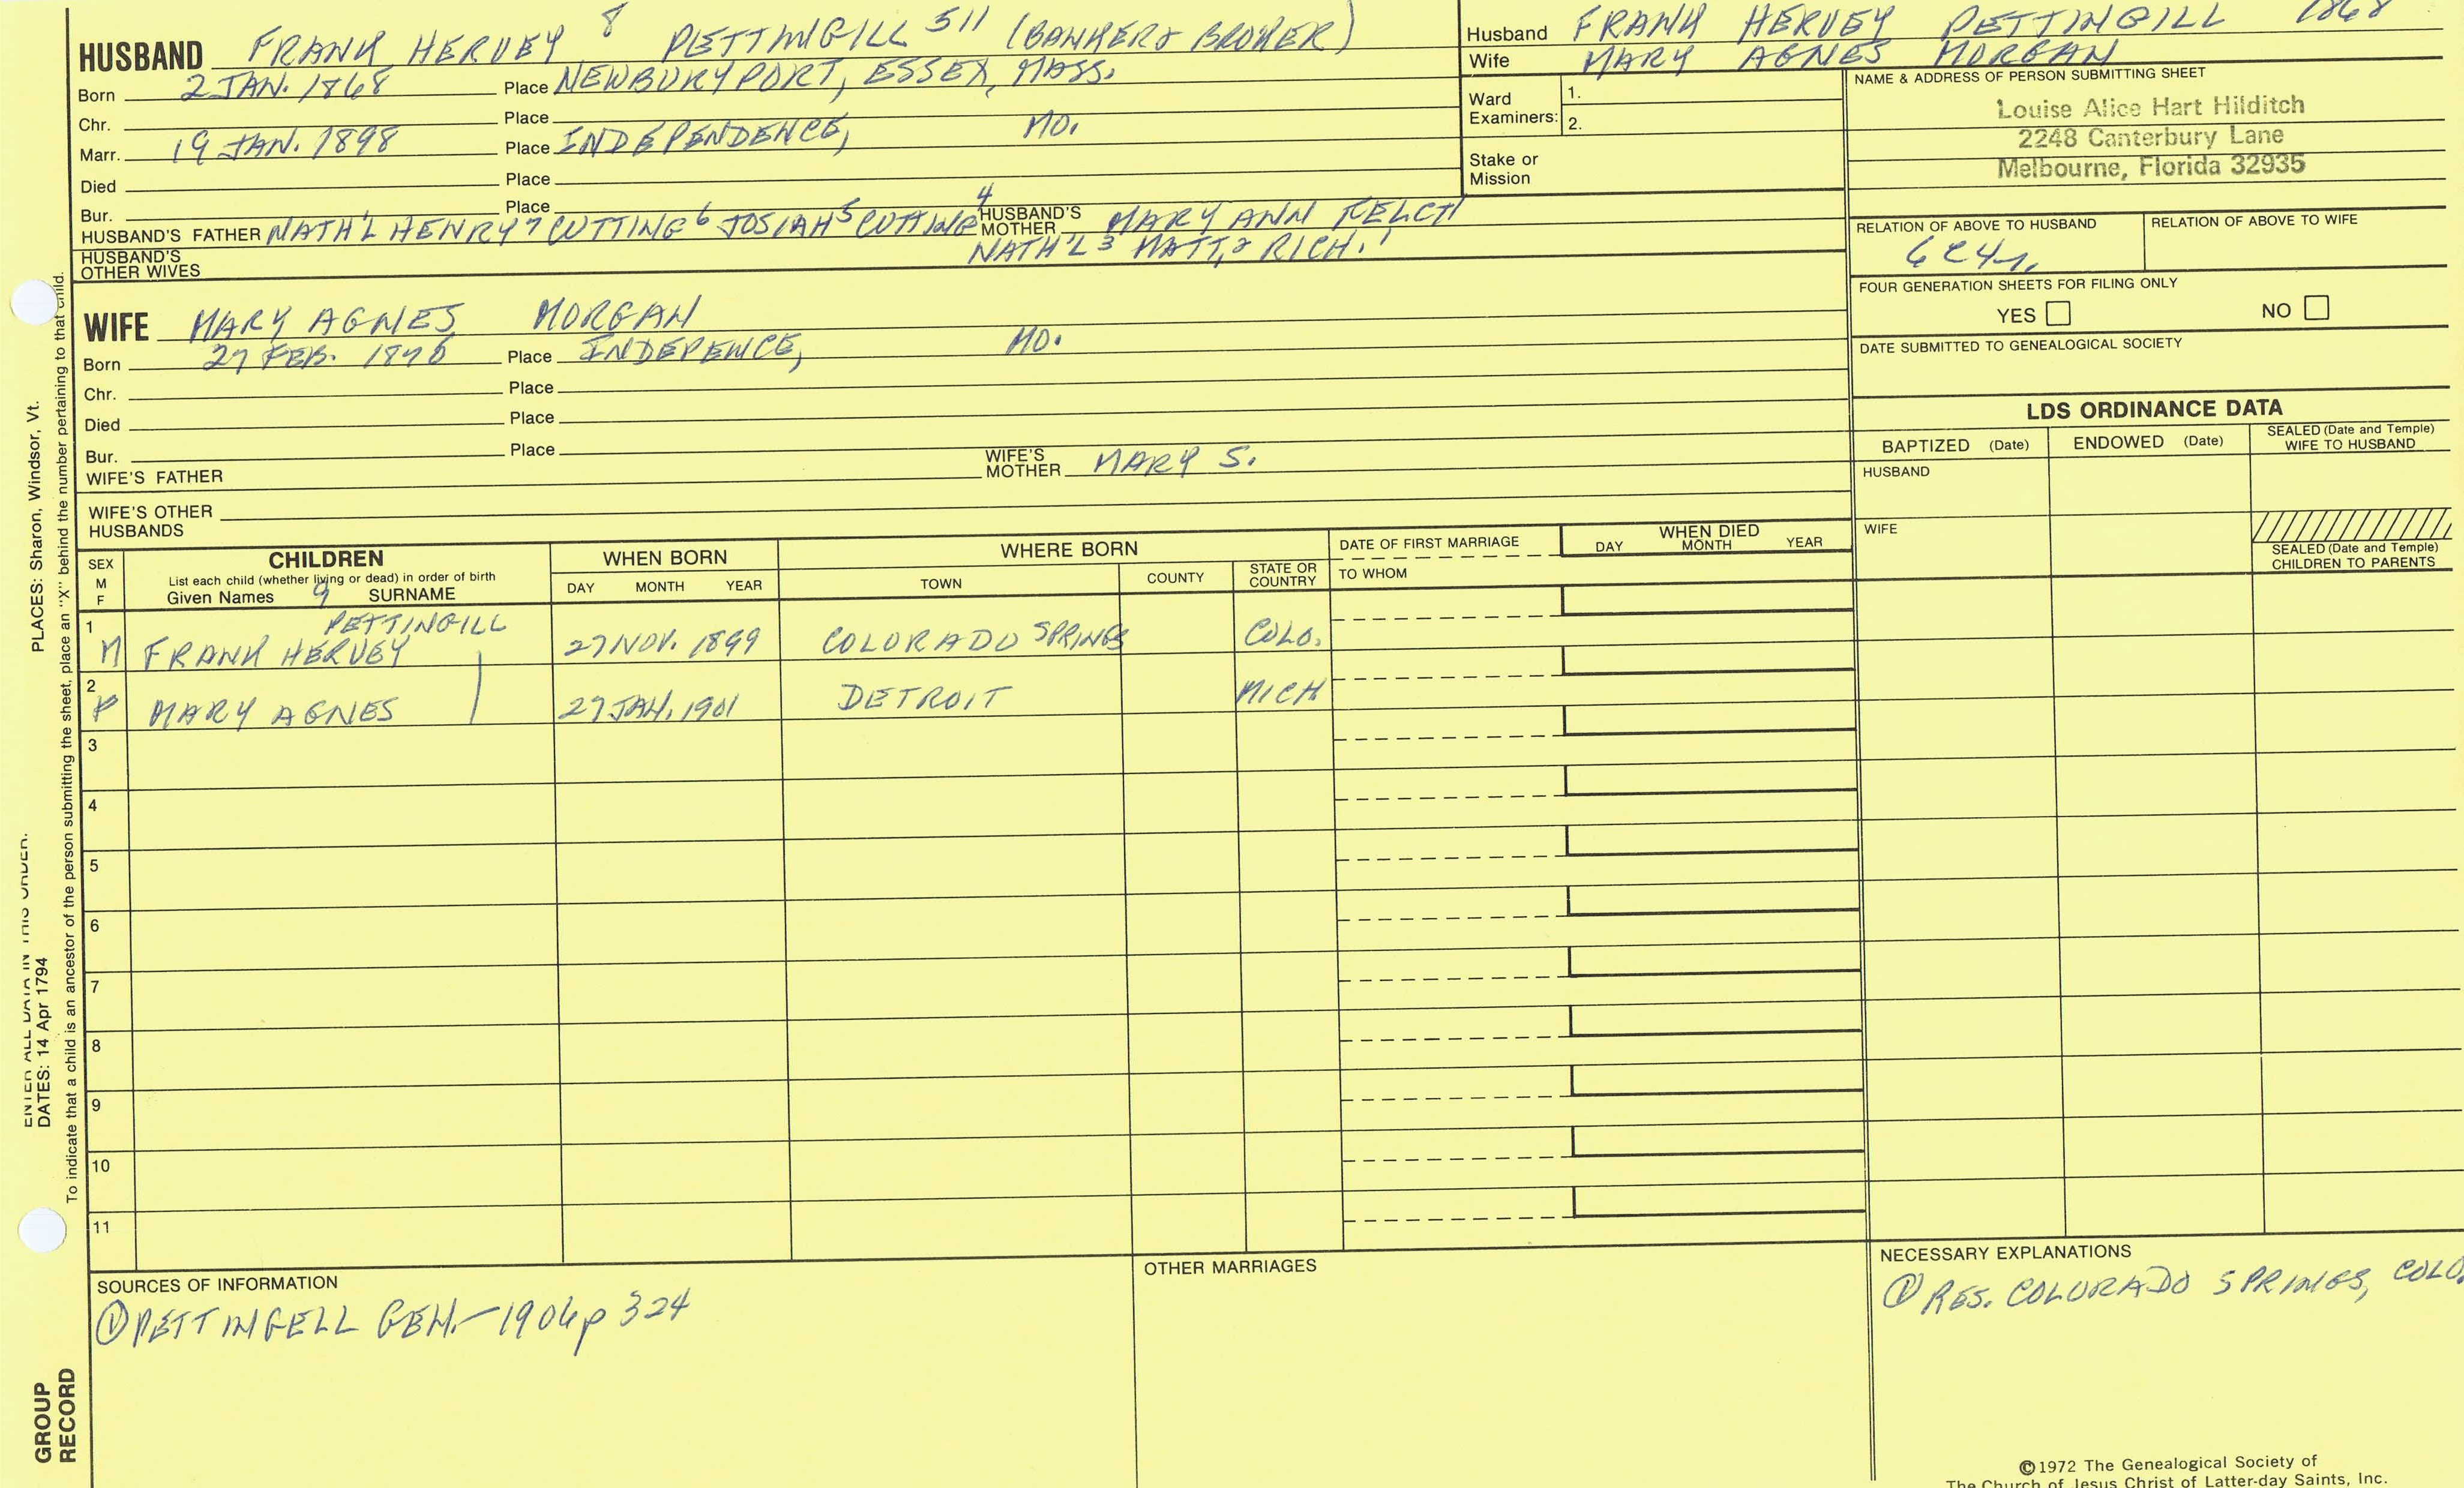 HUSBAND FRANK HERVEY 8 PETTINGILL 511 (BANKER & BROKER)
Born 2 JAN. 1868 Place NEWBURYPORT, ESSEX, MASS.
Chr. Place
Marr. 19 JAN. 1898 Place INDEPENDENCE, MO.
Died Place
Bur. Place
HUSBAND'S FATHER NATH'L HENRY 7 CUTTING 6 JOSIAH 5 CUTTING 4 HUSBAND'S MOTHER MARY ANN
HUSBAND'S OTHER WIVES NATH'L 3 MATT. 2 RICH. 1
Husband FRANK HERVEY PETTINGILL 1868
Wife MARY AGNES MORGAN
Ward Examiners: 1.
2.
Stake or Mission
NAME & ADDRESS OF PERSON SUBMITTING SHEET
Louise Alice Hart Hilditch
2248 Canterbury Lane
Melbourne, Florida 32935
RELATION OF ABOVE TO HUSBAND RELATION OF ABOVE TO WIFE
FOUR GENERATION SHEETS FOR FILING ONLY
YES NO
DATE SUBMITTED TO GENEALOGICAL SOCIETY
WIFE MARY AGNES MORGAN
Born 27 FEB. Place INDEPENCE, MO.
Chr. Place
Died Place
Bur. Place
WIFE'S FATHER WIFE'S MOTHER MARY S.
WIFE'S OTHER HUSBANDS
LDS ORDINANCE DATA
BAPTIZED (Date) ENDOWED (Date) SEALED (Date and Temple) WIFE TO HUSBAND
HUSBAND
WIFE
SEALED (Date and Temple) CHILDREN TO PARENTS
SEX M F CHILDREN WHEN BORN WHERE BORN DATE OF FIRST MARRIAGE WHEN DIED
List each child (whether living or dead) in order of birth
Given Names 9 SURNAME DAY MONTH YEAR TOWN COUNTY STATE OR COUNTRY TO WHOM DAY MONTH YEAR
1 M FRANK HERVEY PETTINGILL 27 NOV. 1899 COLORADO SPRINGS COLO.
2 F MARY AGNES 27 JAN. 1901 DETROIT MICH
3
4
5
6
7
8
9
10
11
SOURCES OF INFORMATION
① PETTINGELL GEN.-1906 p 324
OTHER MARRIAGES
NECESSARY EXPLANATIONS
① RES. COLORADO SPRINGS, COLO.
©1972 The Genealogical Society of
The Church of Jesus Christ of Latter-day Saints, Inc.
ENTER ALL DATA IN THIS ORDER:
DATES: 14 Apr 1794 PLACES: Sharon, Windsor, Vt.
To indicate that a child is an ancestor of the person submitting the sheet, place an "X" behind the number pertaining to that child.
GROUP
RECORD